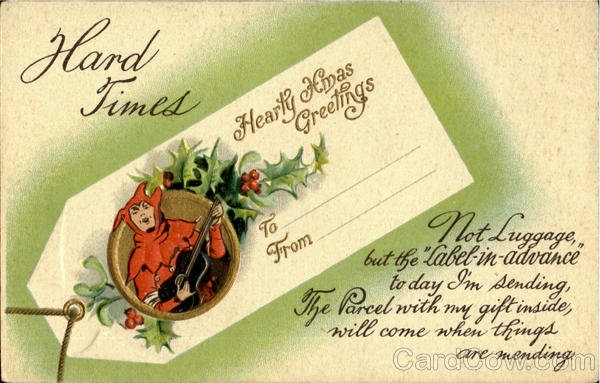 Hard
Times
Hearty Xmas
Greetings
To
From
Not Luggage,
but the "Label-in-advance"
to day I'm sending,
The Parcel with my gift inside,
will come when things
are mending.
CardCow.com